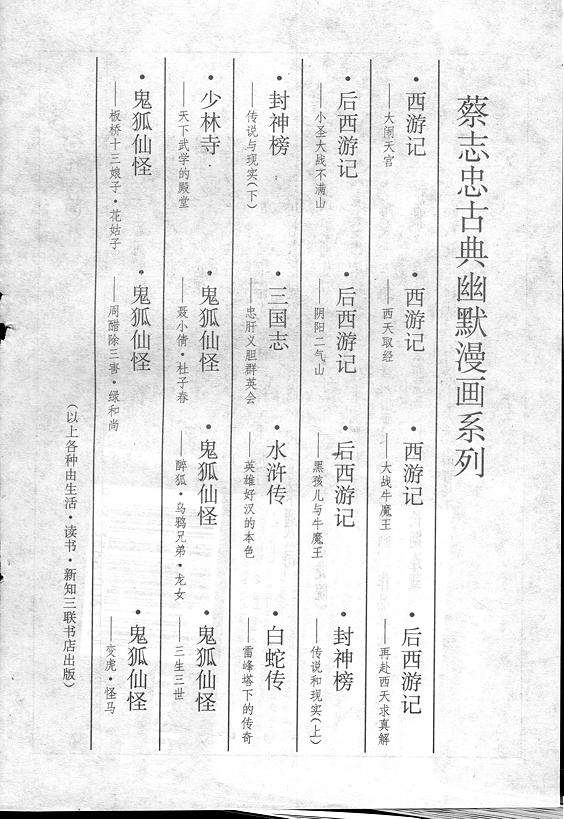 蔡志忠古典幽默漫画系列
•西游记
——大闹天宫
•西游记
——西天取经
•西游记
——大战牛魔王
•后西游记
——再赴西天求真解
•后西游记
——小圣大战不满山
•后西游记
——阴阳二气山
•后西游记
——黑孩儿与牛魔王
•封神榜
——传说和现实(上)
•封神榜
——传说与现实(下)
•三国志
——忠肝义胆群英会
•水浒传
——英雄好汉的本色
•白蛇传
——雷峰塔下的传奇
•少林寺
——天下武学的殿堂
•鬼狐仙怪
——聂小倩•杜子春
•鬼狐仙怪
——醉狐•乌鸦兄弟•龙女
•鬼狐仙怪
——三生三世
•鬼狐仙怪
——板桥十三娘子•花姑子
•鬼狐仙怪
——周醋除三害•绿和尚
•鬼狐仙怪
——变虎•怪马
(以上各种由生活•读书•新知三联书店出版)